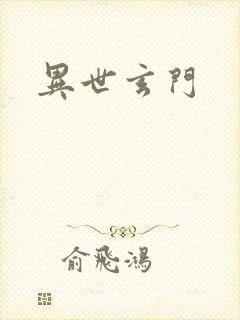 異世玄門
俞飛鴻